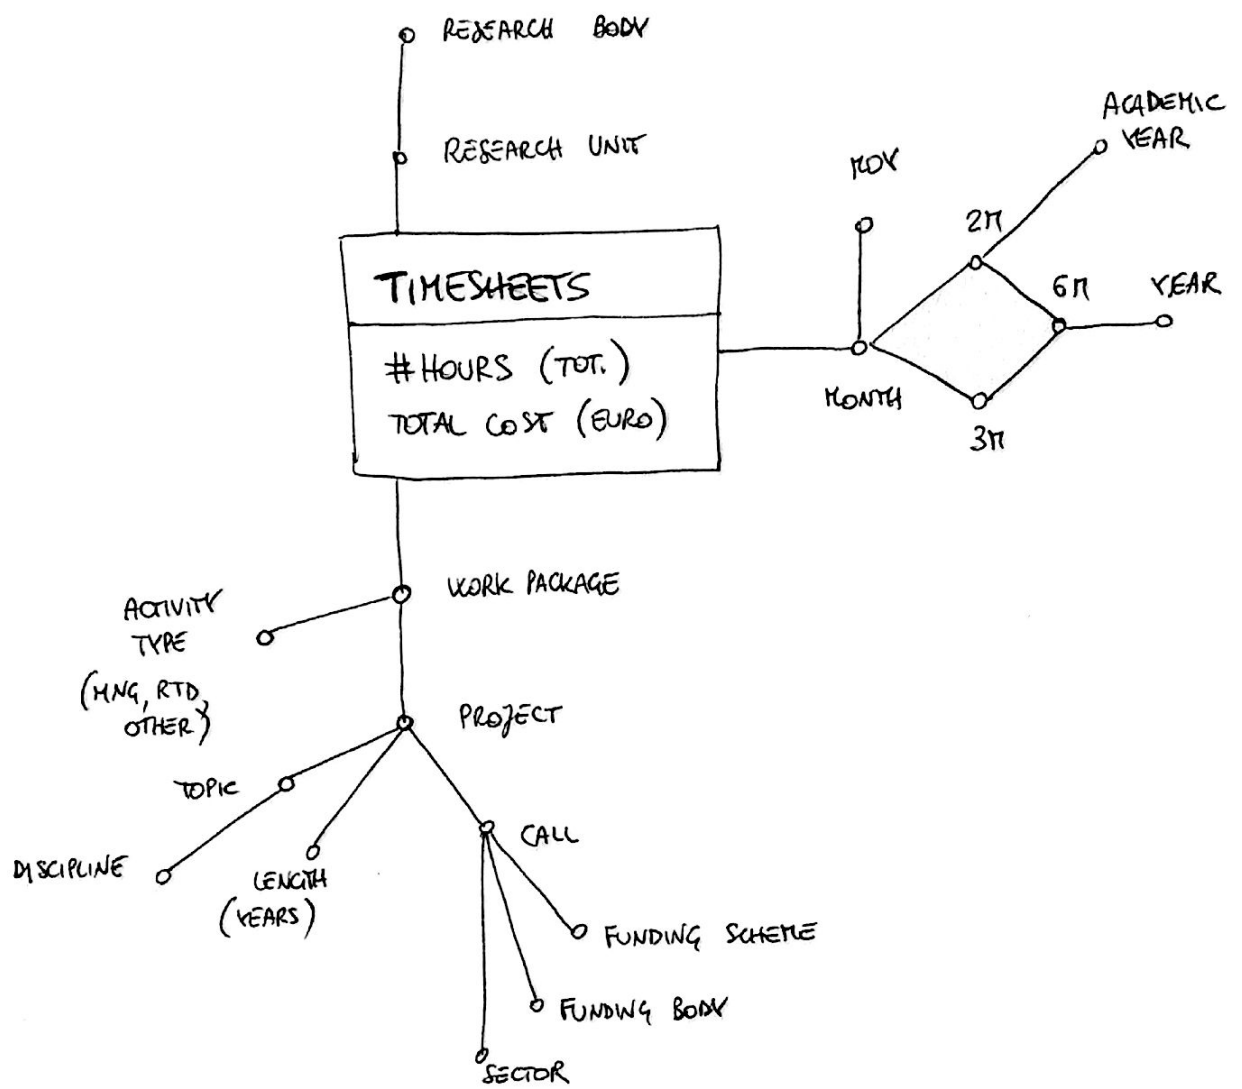 RESEARCH BODY
RESEARCH UNIT
TIMESHEETS
#HOURS (TOT.)
TOTAL COST (EURO)
MOY
MONTH
2M
3M
6M
ACADEMIC
YEAR
YEAR
WORK PACKAGE
ACTIVITY
TYPE
(MNG, RTD,
OTHER)
PROJECT
TOPIC
DISCIPLINE
LENGTH
(YEARS)
CALL
FUNDING SCHEME
FUNDING BODY
SECTOR